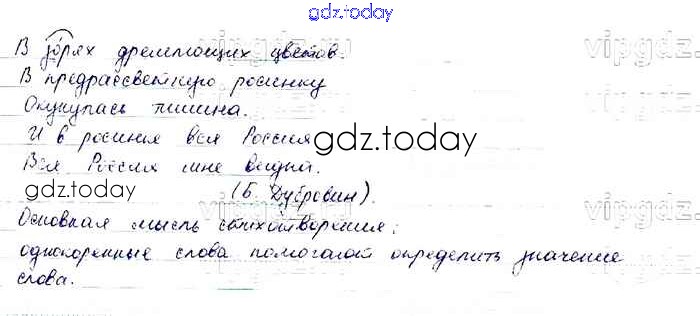 gdz.today
В зорях дремлющих цветов.
В предрассветную росинку
Окунулась тишина.
И в росинке вся Россия
gdz.today
Вся Россия мне видна.
gdz.today
(Б. Дубровин).
Основная мысль стихотворения:
однокоренные слова помогают определить значение
слова.
vipgdz